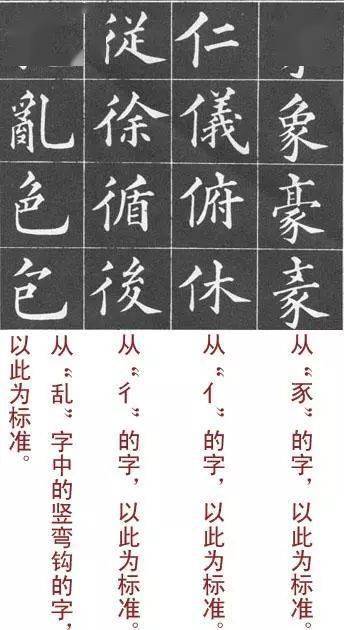 象豪
仁儀俯休
従徐循後
亂色
从“豕”的字，以此为标准。
从“亻”的字，以此为标准。
从“彳”的字，以此为标准。
从“乱”字中的竖弯钩的字，
以此为标准。